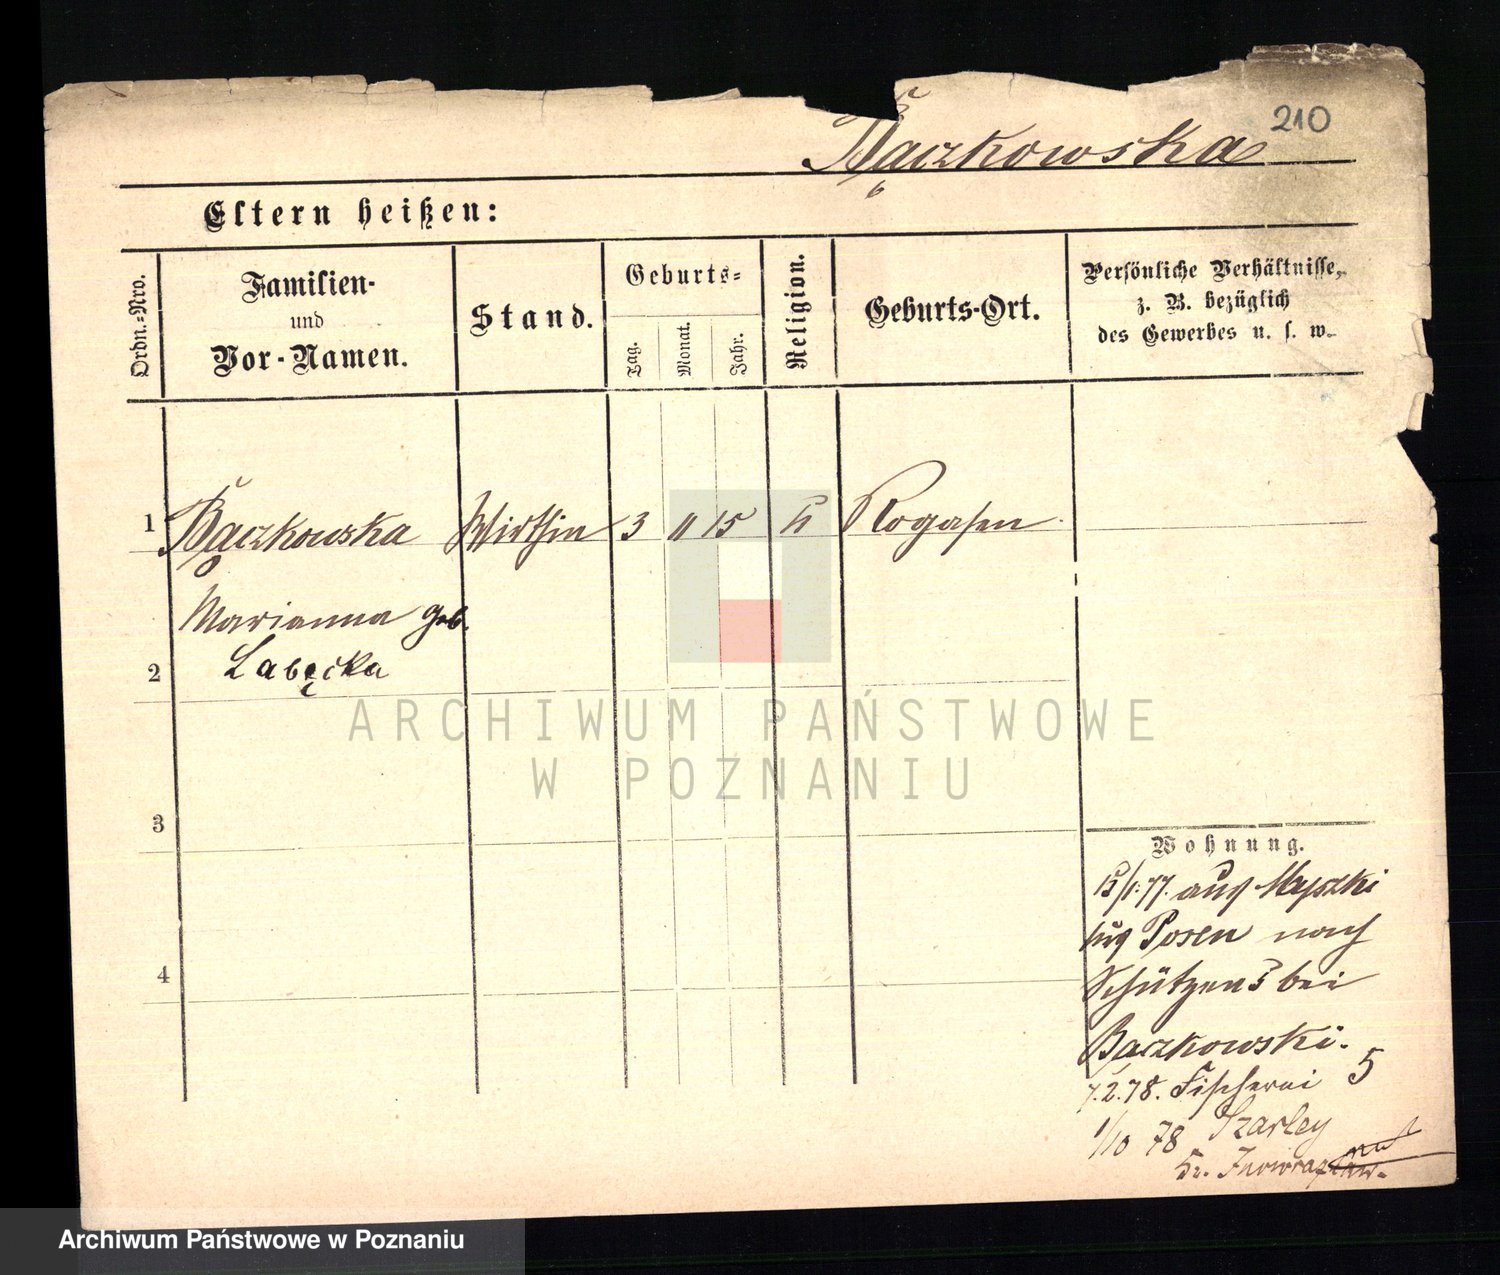 210
Bączkowska
Eltern heißen:
Ordn.-Nro.
Familien-
und
Vor-Namen.
Stand.
Geburts-
Tag.
Monat.
Jahr.
Religion.
Geburts-Ort.
Persönliche Verhältnisse,
z. B. bezüglich
des Gewerbes u. s. w.
1 Bączkowska Wirthin 3 11 15 k Rogasen
Marianna geb.
2 Labęcka
3
4
Wohnung.
15/1.77. aus Myszki
Posen nach
Schützen 5 bei
Baczkowski.
7.2.78. Fischerei 5
1/10 78 Szarley
Inowrazlaw.
ARCHIWUM PAŃSTWOWE
W POZNANIU
Archiwum Państwowe w Poznaniu